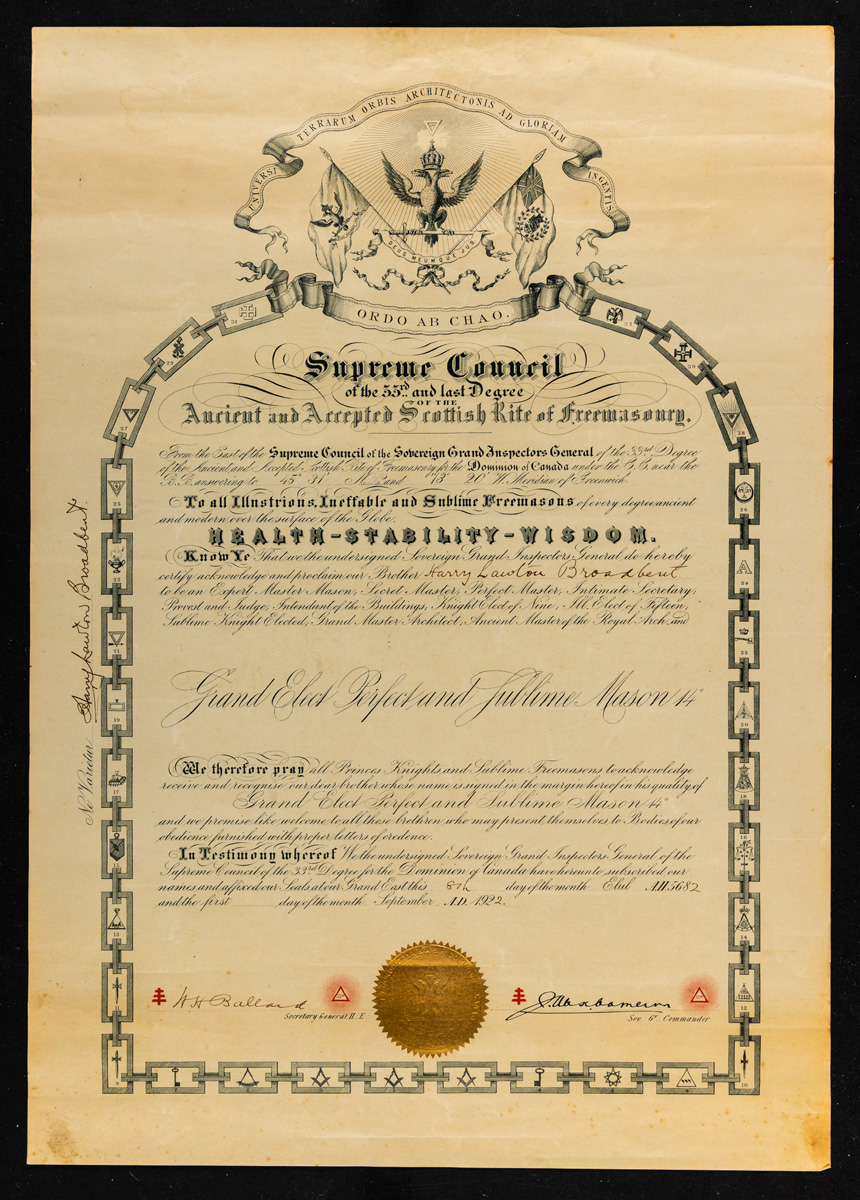 UNIVERSI TERRARUM ORBIS ARCHITECTONIS AD GLORIAM INGENTIS
DEUS MEUMQUE JUS
ORDO AB CHAO.
Supreme Council
of the 33rd and last Degree
OF THE
Ancient and Accepted Scottish Rite of Freemasonry.
From the East of the Supreme Council of the Sovereign Grand Inspectors General of the 33rd Degree
of the Ancient and Accepted Scottish Rite of Freemasonry for the Dominion of Canada under the C.C. near the
B.B. answering to 45° 31' N.L. and 73° 20' W. Meridian of Greenwich
To all Illustrious, Ineffable and Sublime Freemasons of every degree ancient
and modern over the surface of the Globe.
HEALTH-STABILITY-WISDOM.
Know Ye That we the undersigned Sovereign Grand Inspectors General do hereby
certify acknowledge and proclaim our Brother Harry Lawton Broadbent
to be an Expert Master Mason, Secret Master, Perfect Master, Intimate Secretary,
Provost and Judge, Intendant of the Buildings, Knight Elect of Nine, Ill. Elect of Fifteen,
Sublime Knight Elected, Grand Master Architect, Ancient Master of the Royal Arch, and
Grand Elect Perfect and Sublime Mason 14°
We therefore pray all Princes Knights and Sublime Freemasons to acknowledge
receive and recognise our dear brother whose name is signed in the margin hereof in his quality of
Grand Elect Perfect and Sublime Mason 14°
and we promise like welcome to all those brethren who may present themselves to Bodies of our
obedience furnished with proper letters of credence.
In Testimony whereof We the undersigned Sovereign Grand Inspectors General of the
Supreme Council of the 33rd Degree for the Dominion of Canada have hereunto subscribed our
names and affixed our Seals at our Grand East this 8th day of the month Elul A.H. 5682
and the first day of the month September A.D. 1922.
W H Ballard
Secretary General H.E.
Sov. Gr. Commander.
Ne Varietur Harry Lawton Broadbent.
31
32
29
30
27
28
25
26
23
24
21
22
19
20
17
18
15
16
13
14
11
12
9
10